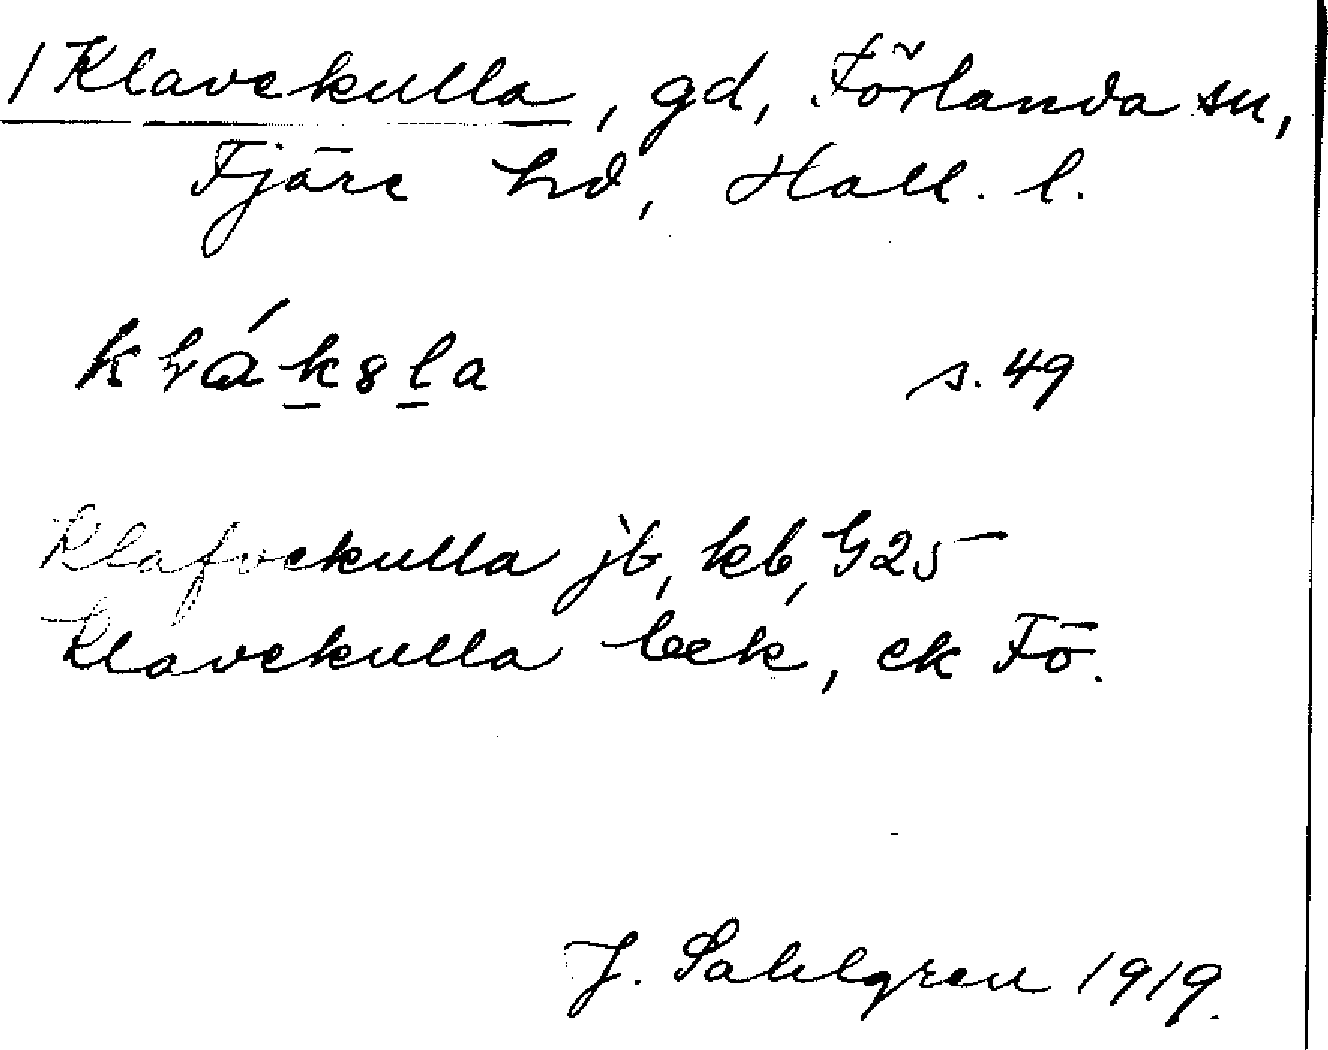 1 Klavekulla, gd, Förlanda sn,
Fjäre hd, Hall. l.
s. 49
Klafvekulla jb, kb, G25
Klavekulla bek, ek Fö.
J. Sahlgren 1919.